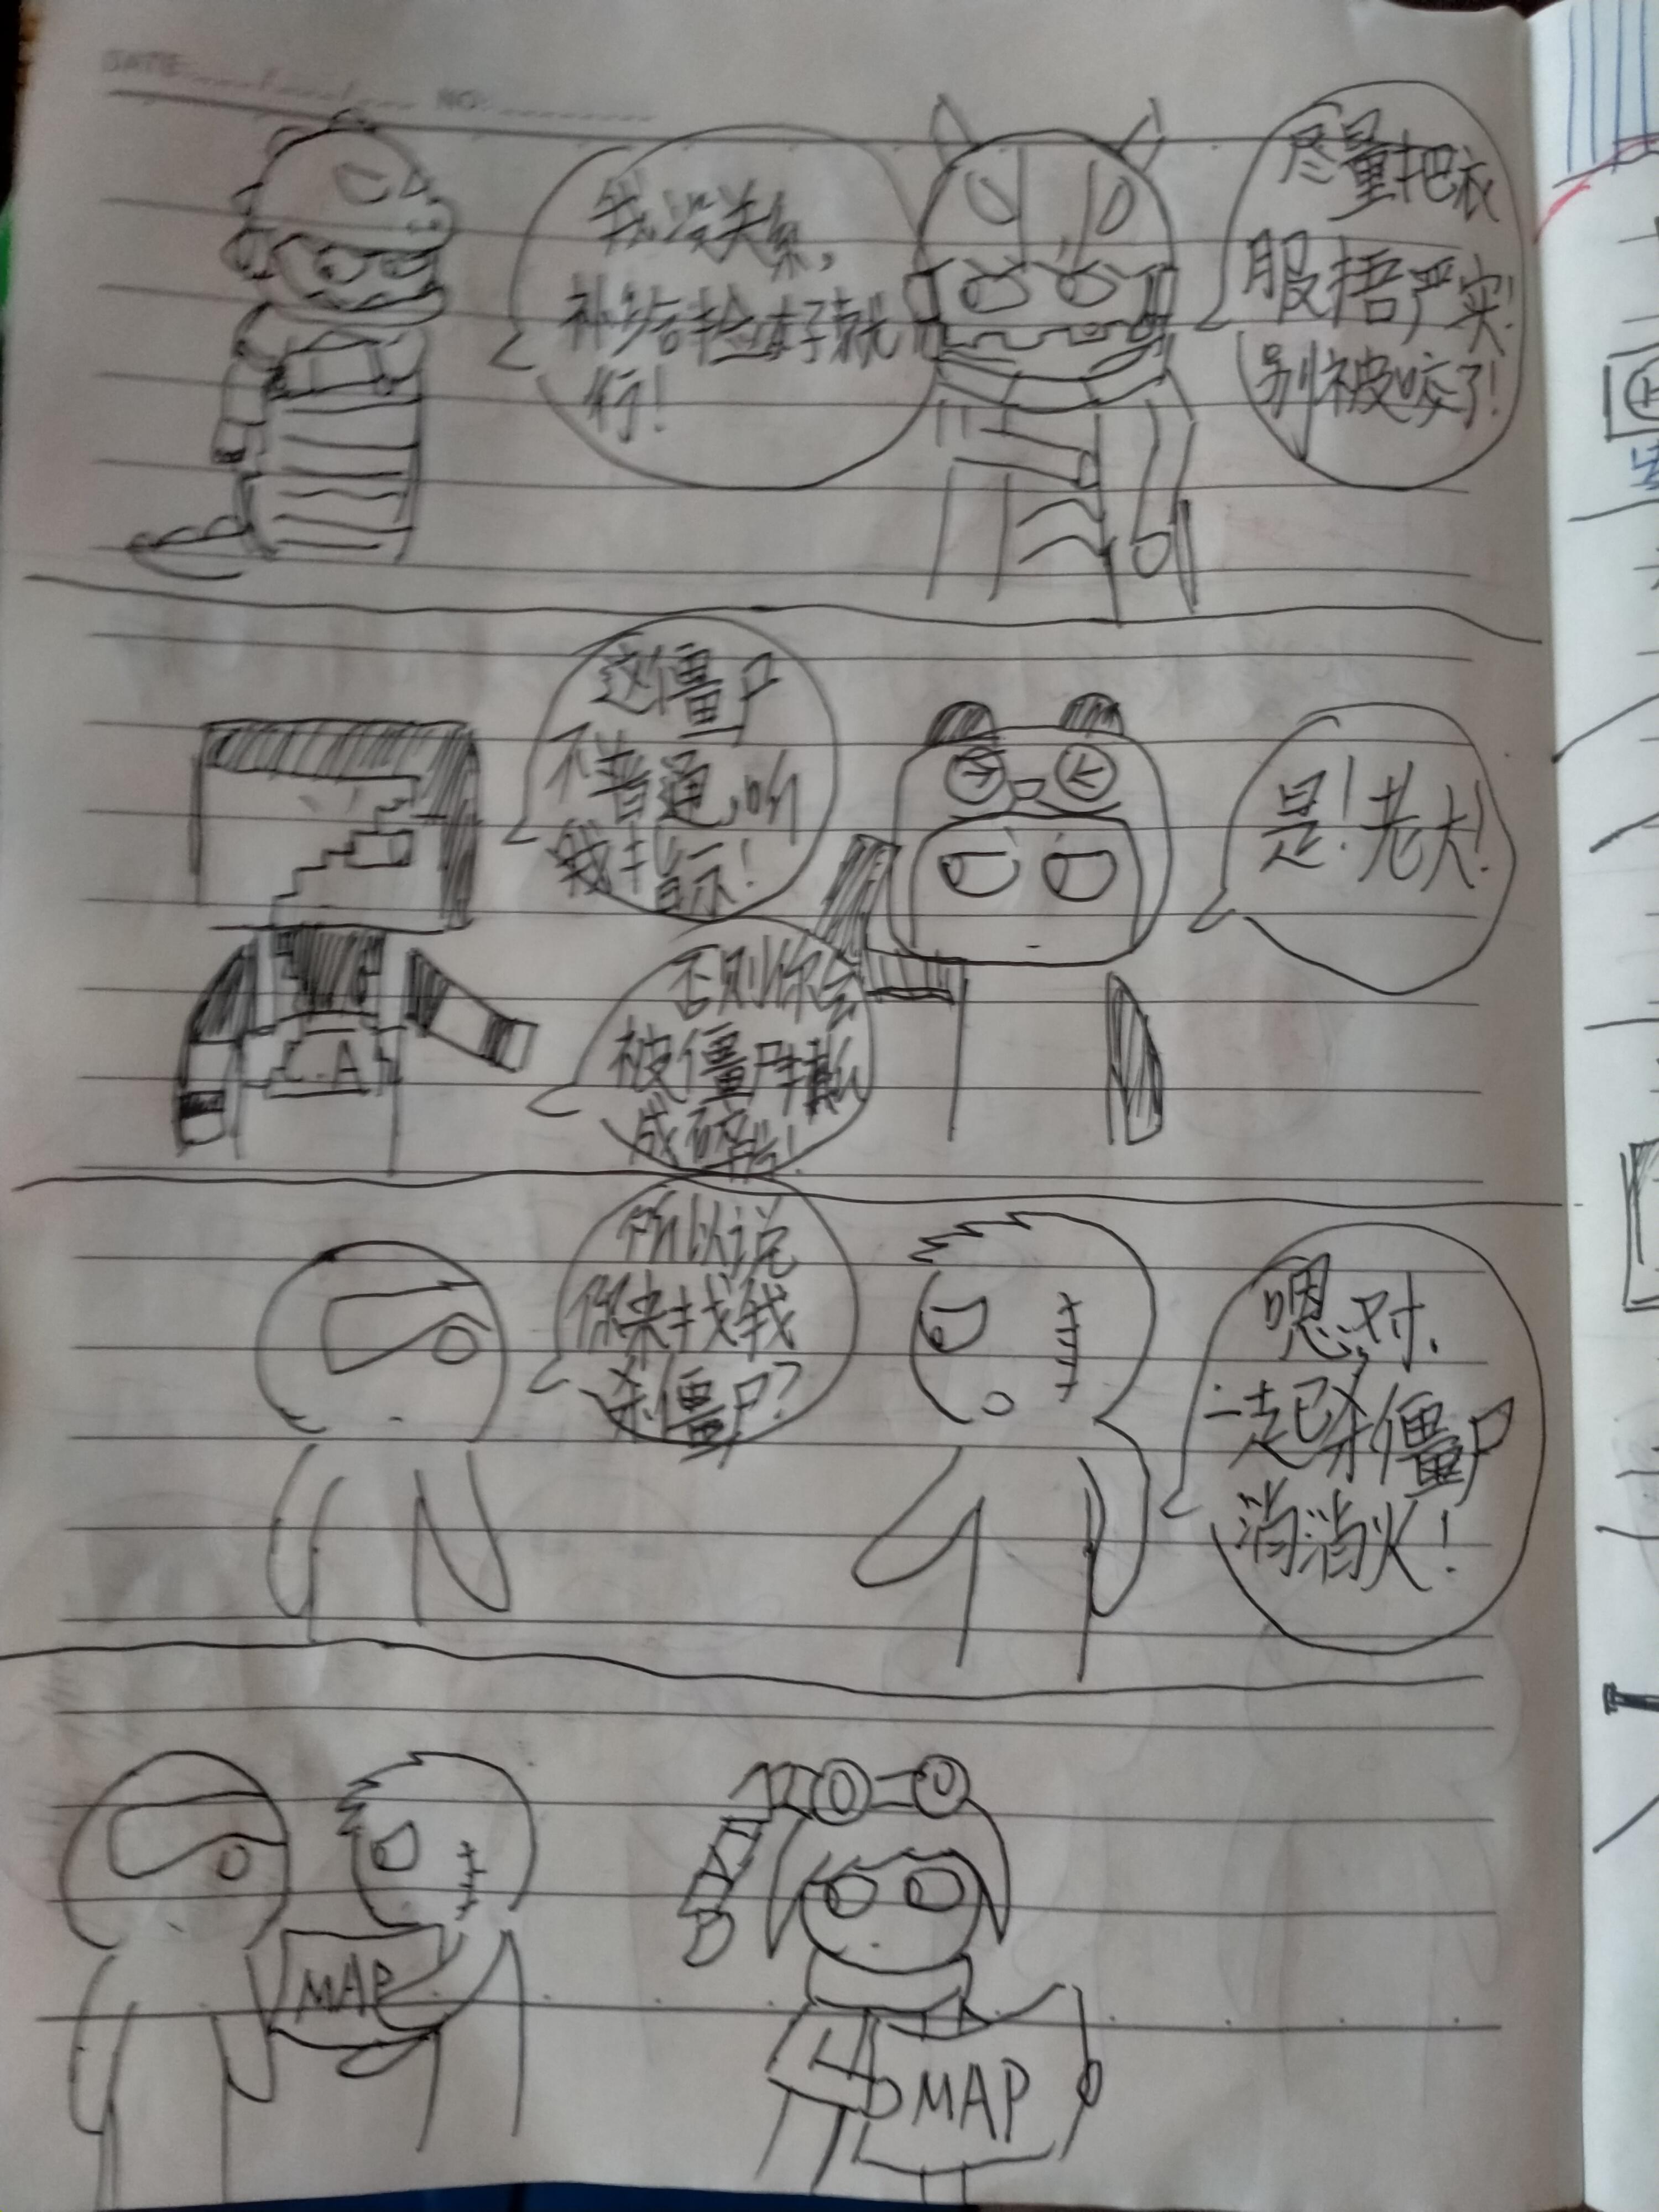 DATE NO:
我没关系,
补给捡渣子就
行!
尽量把衣
服捂严实!
别被咬了!
这僵尸
不普通,听
我指示!
否则你会
被僵尸撕
成碎
是!老大!
C.A
所以说
你来找我
杀僵尸?
嗯,对.
一起杀僵尸
消消火!
MAP
MAP